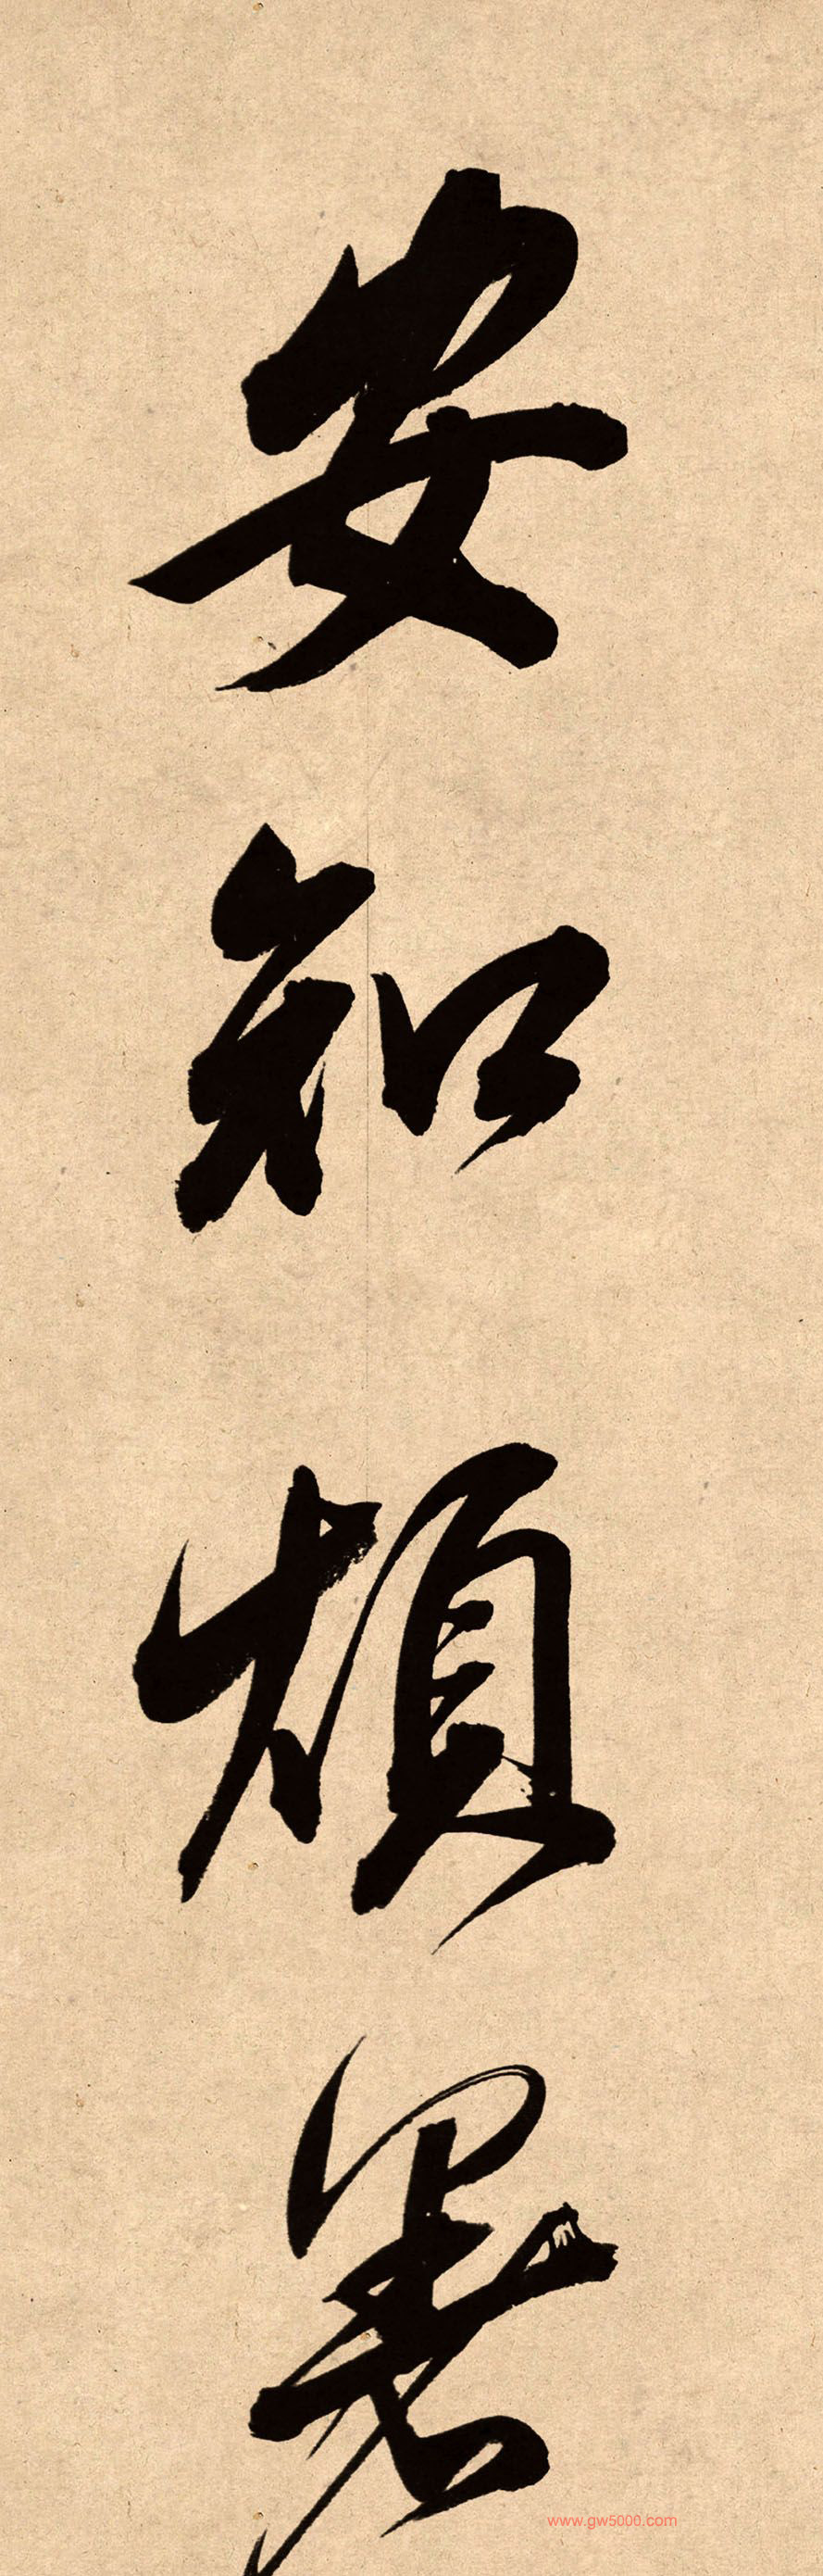 安知煩暑
www.gw5000.com